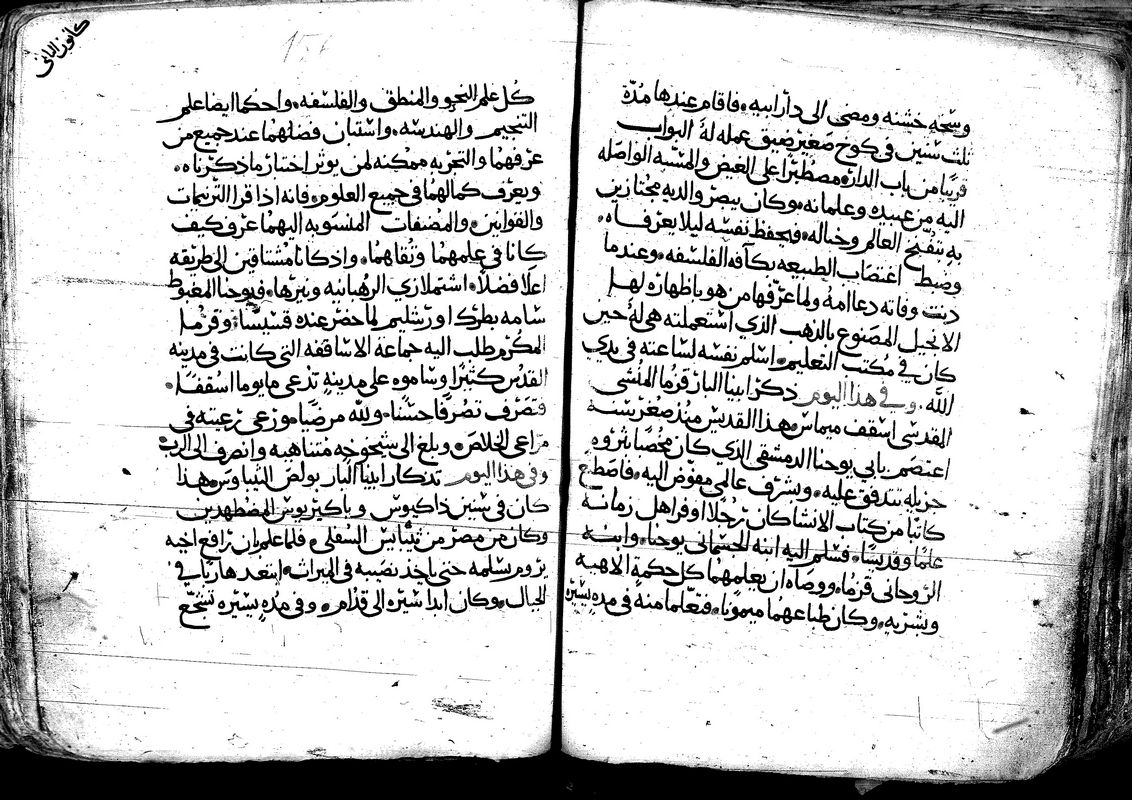 وسخه خشنه ومضى الى دار ابيه فاقام عندها مدّة
ثلث سنين في كوخ صغير ضيق عمله له البواب
قريبًا من باب الدار مصطبرًا على الغيض والمشقه الواصله
اليه من عبيده وغلمانه وكان يبصر والديه مجتازين
به بتنفيخ العالم وخياله فيحفظ نفسه ليلا يعرفاه
وضبط اغتصاب الطبيعه بكافة الفلسفه وعندما
دنت وفاته دعا امه ولما عرّفها من هو باظهاره لها
الانجيل المصنوع بالذهب الذي استعملته هي له حين
كان في مكتب التعليم اسلم نفسه لساعته في يدي
الله وفي هذا اليوم ذكر ابينا البار قزما المنشى
القدسي اسقف ميماس هذا القديس منذ صغر سنه
اعتصم بابي يوحنا الدمشقي الذي كان مخصًا بثروه
جزيله تتدفق عليه وبشرف عالمي مفوض اليه فاصطنع
كاتبًا من كتاب الانشا كان رجلا اوفر اهل زمانه
علمًا وقديسًا فسلم اليه ابنه الجسماني يوحنا وابنه
الروحاني قزما ووصاه ان يعلمهما كل حكمة الاهيه
وبشريه وكان طباعهما ميمونًا فتعلما منه في مده يسيره
كانون الثاني
كُل علم النحو والمنطق والفلسفه واحكما ايضا علم
التنجيم والهندسه واستبان فضلهما عند جميع من
عرفهما والتجربه ممكنه لمن يوثر اختبار ما ذكرناه
ويعرف كمالهما في جميع العلوم فانه اذا قرا الترنيمات
والقوانين والمصنفات المنسوبه اليهما عرف كيف
كانا في علمهما وتقاهما واذ كانا مشتاقين الى طريقه
اعلا فضلا اشتملا زي الرهبانيه ونيرها فيوحنا المغبوط
سامه بطرك اورشليم لما حضر عنده قسيسًا وقزما
المكرم طلب اليه جماعة الاساقفه التي كانت في مدينه
القدس كثيرًا وساموه على مدينةٍ تدعى مايوما اسقفًا
فتصرف تصرفًا حسنًا ولله مرضيًا ورعى رعيته في
مراعي الخلاص وبلغ الى شيخوخه متناهيه وانصرف الى الرب
وفي هذا اليوم تذكار ابينا البار بولص الثيباوس هذا
كان في سنين داكيوس وباكيريوس المضطهدين
وكان من مصر من ثيباس السفلى فلما علم ان رافع اخيه
يروم يسلمه حتى ياخذ نصيبه في الميراث ابتعد هاربًا في
الجبال وكان ابدا سيره الى قدام وفي مده يسيره تشجّع